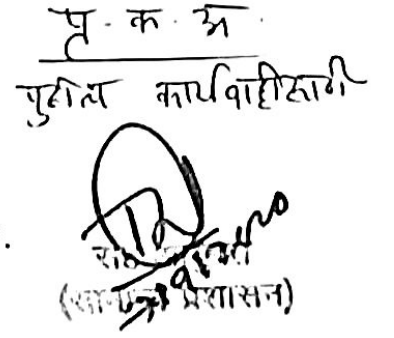 प्र. क. अ.
पुढील कार्यवाहीसाठी
(सामान्य प्रशासन)